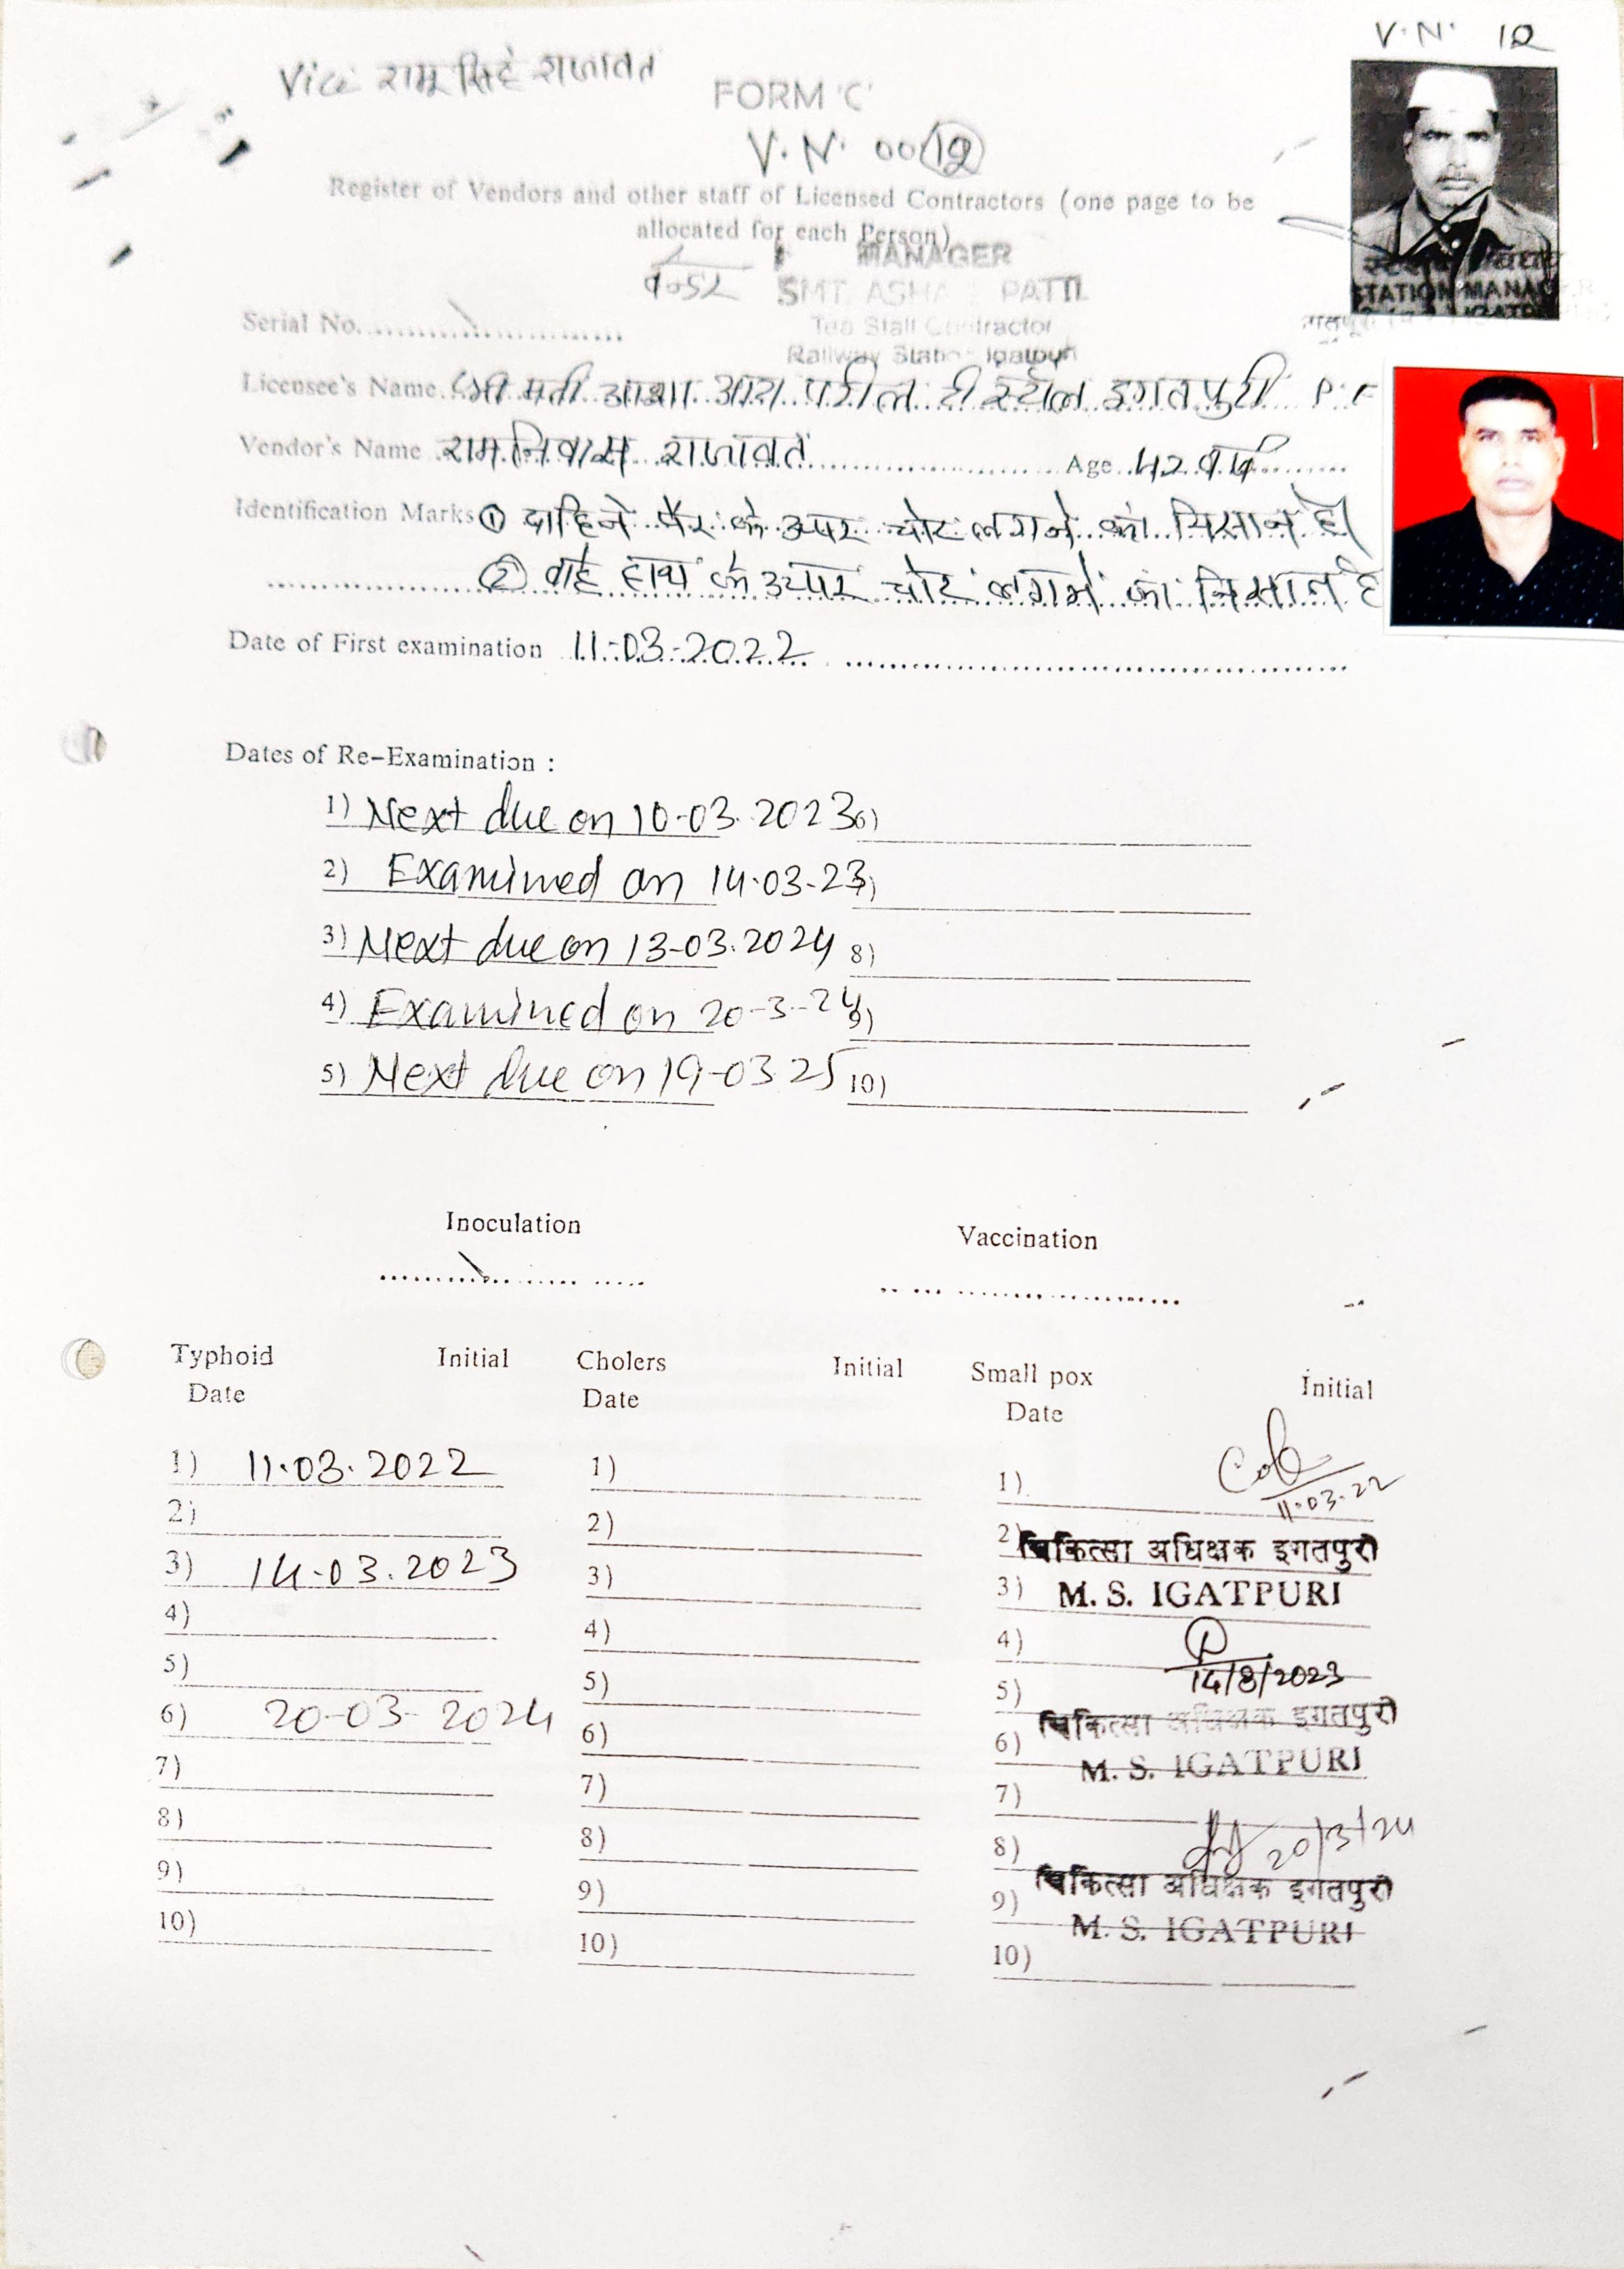 V. N. 12
Vice रामू सिंह राजावत
FORM 'C'
V. N. 00 12
Register of Vendors and other staff of Licensed Contractors (one page to be
allocated for each Person)
MANAGER
SMT. ASHA PATIL
Tea Stall Contractor
Railway Station Igatpuri
STATION MANAGER
Serial No.
Licensee's Name श्री मती आशा आर. पाटील टी स्टॉल इगतपुरी P. F
Vendor's Name राम निवास राजावत Age 42 वर्ष
Identification Marks ① दाहिने पैर के उपर चोट लगने का निसान है
② बाई हाथ के उपर चोट लगने का निसान है
Date of First examination 11-03-2022
Dates of Re-Examination :
1) Next due on 10-03-2023 6)
2) Examined on 14-03-23 )
3) Next due on 13-03-2024 8)
4) Examined on 20-3-24 9)
5) Next due on 19-03 25 10)
Inoculation Vaccination
Typhoid Initial Cholers Initial Small pox Initial
Date Date Date
1) 11.03.2022 1) 1)
11.03.22
2) 2) 2) चिकित्सा अधिक्षक इगतपुरी
3) 14-03.2023 3) 3) M. S. IGATPURI
4) 4) 4)
5) 5) 5) 14/3/2023
6) 20-03-2024 6) 6) चिकित्सा अधिक्षक इगतपुरी
M. S. IGATPURI
7) 7) 7)
8) 8) 8) 20/3/24
9) 9) 9) चिकित्सा अधिक्षक इगतपुरी
M. S. IGATPURI
10) 10) 10)